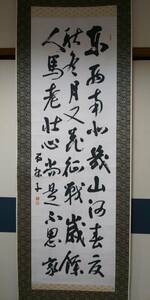 東西南北幾山河春夏
秋冬月又花征戰歳餘
人馬老壮心尚是不思家